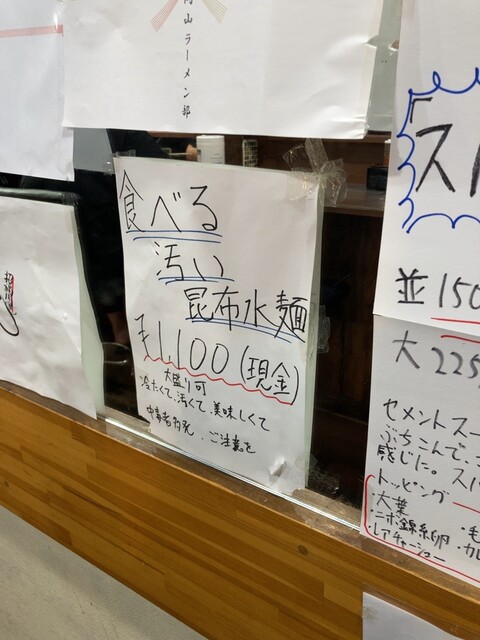 岡山ラーメン部
食べる
汚い
昆布水麺
¥1,100(現金)
大盛り可
冷たくて、汚くて、美味しくて
中毒者多発、ご注意を
「ス
並150
大225
セメントスー
ぶちこんで、
感じた。スパ
トッピング
・大葉
・ニボ錦糸卵
・レアチャーシュー
・毛
・カレ